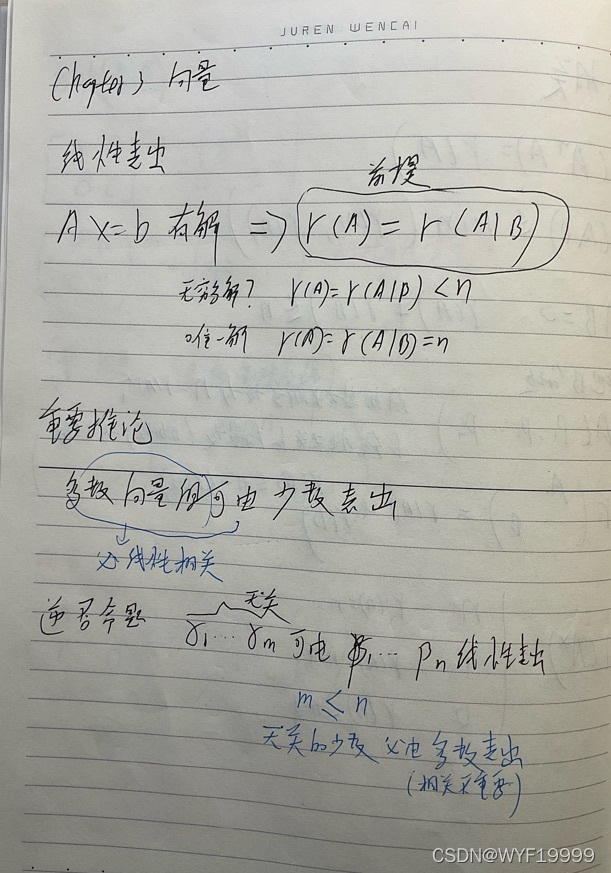 JUREN WENCAI
Chapter3 向量
线性表出
前提
Ax=b 有解 => r(A) = r(A|B)
无穷多解? r(A)=r(A|B)<n
唯一解 r(A)=r(A|B)=n
重要推论
多数向量组可由少数表出
必线性相关
逆否命题 无关
γ1...γm可由 β1... βn线性表出
m≤n
无关的少数必由多数表出
(相关不重要)
CSDN@WYF19999